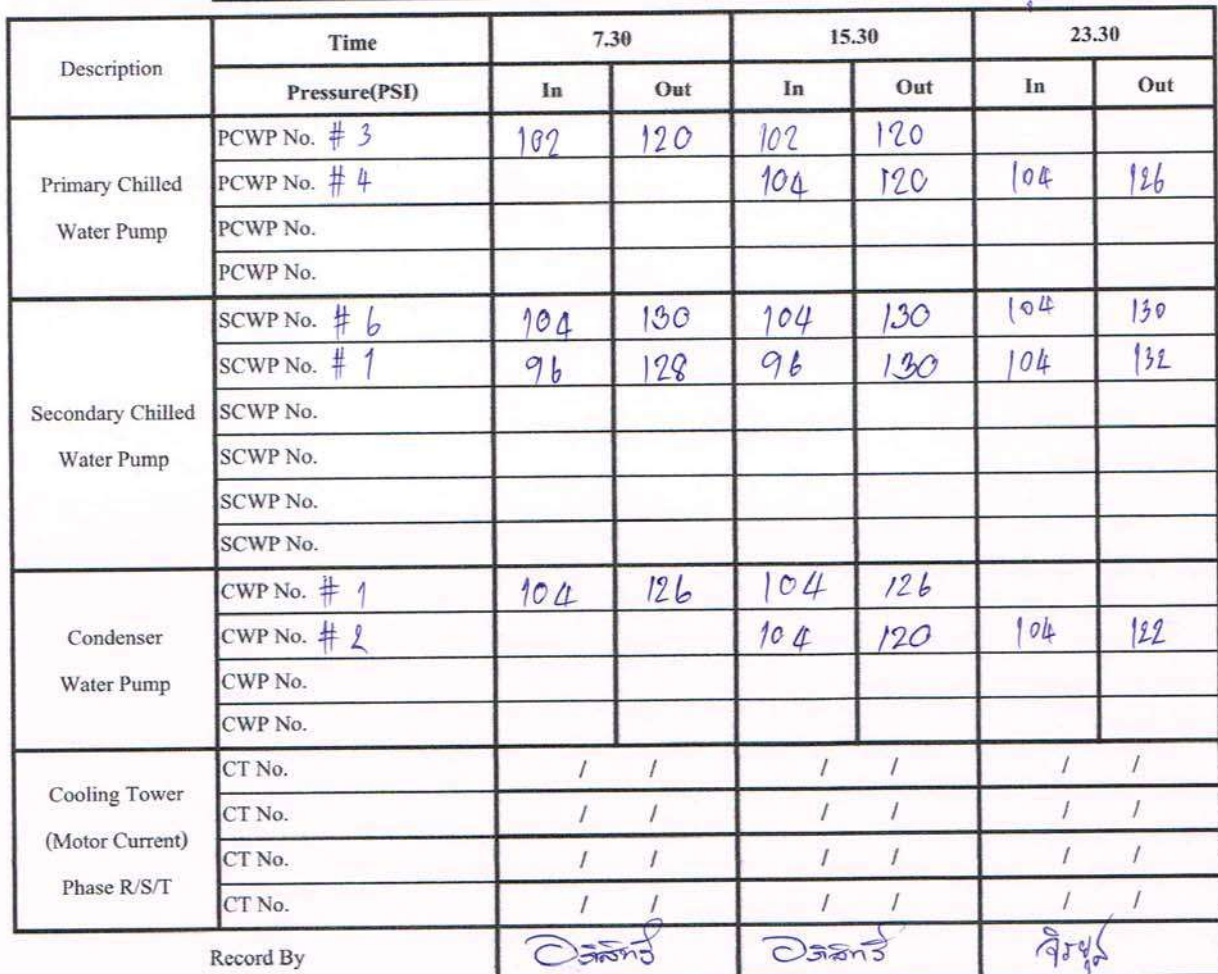 Description Time 7.30 15.30 23.30
Pressure(PSI) In Out In Out In Out
Primary Chilled Water Pump
PCWP No. # 3 102 120 102 120
PCWP No. # 4 104 120 104 126
PCWP No.
PCWP No.
Secondary Chilled Water Pump
SCWP No. # 6 104 130 104 130 104 130
SCWP No. # 1 96 128 96 130 104 132
SCWP No.
SCWP No.
SCWP No.
SCWP No.
Condenser Water Pump
CWP No. # 1 104 126 104 126
CWP No. # 2 104 120 104 122
CWP No.
CWP No.
Cooling Tower
(Motor Current)
Phase R/S/T
CT No. / / / / / /
CT No. / / / / / /
CT No. / / / / / /
CT No. / / / / / /
Record By